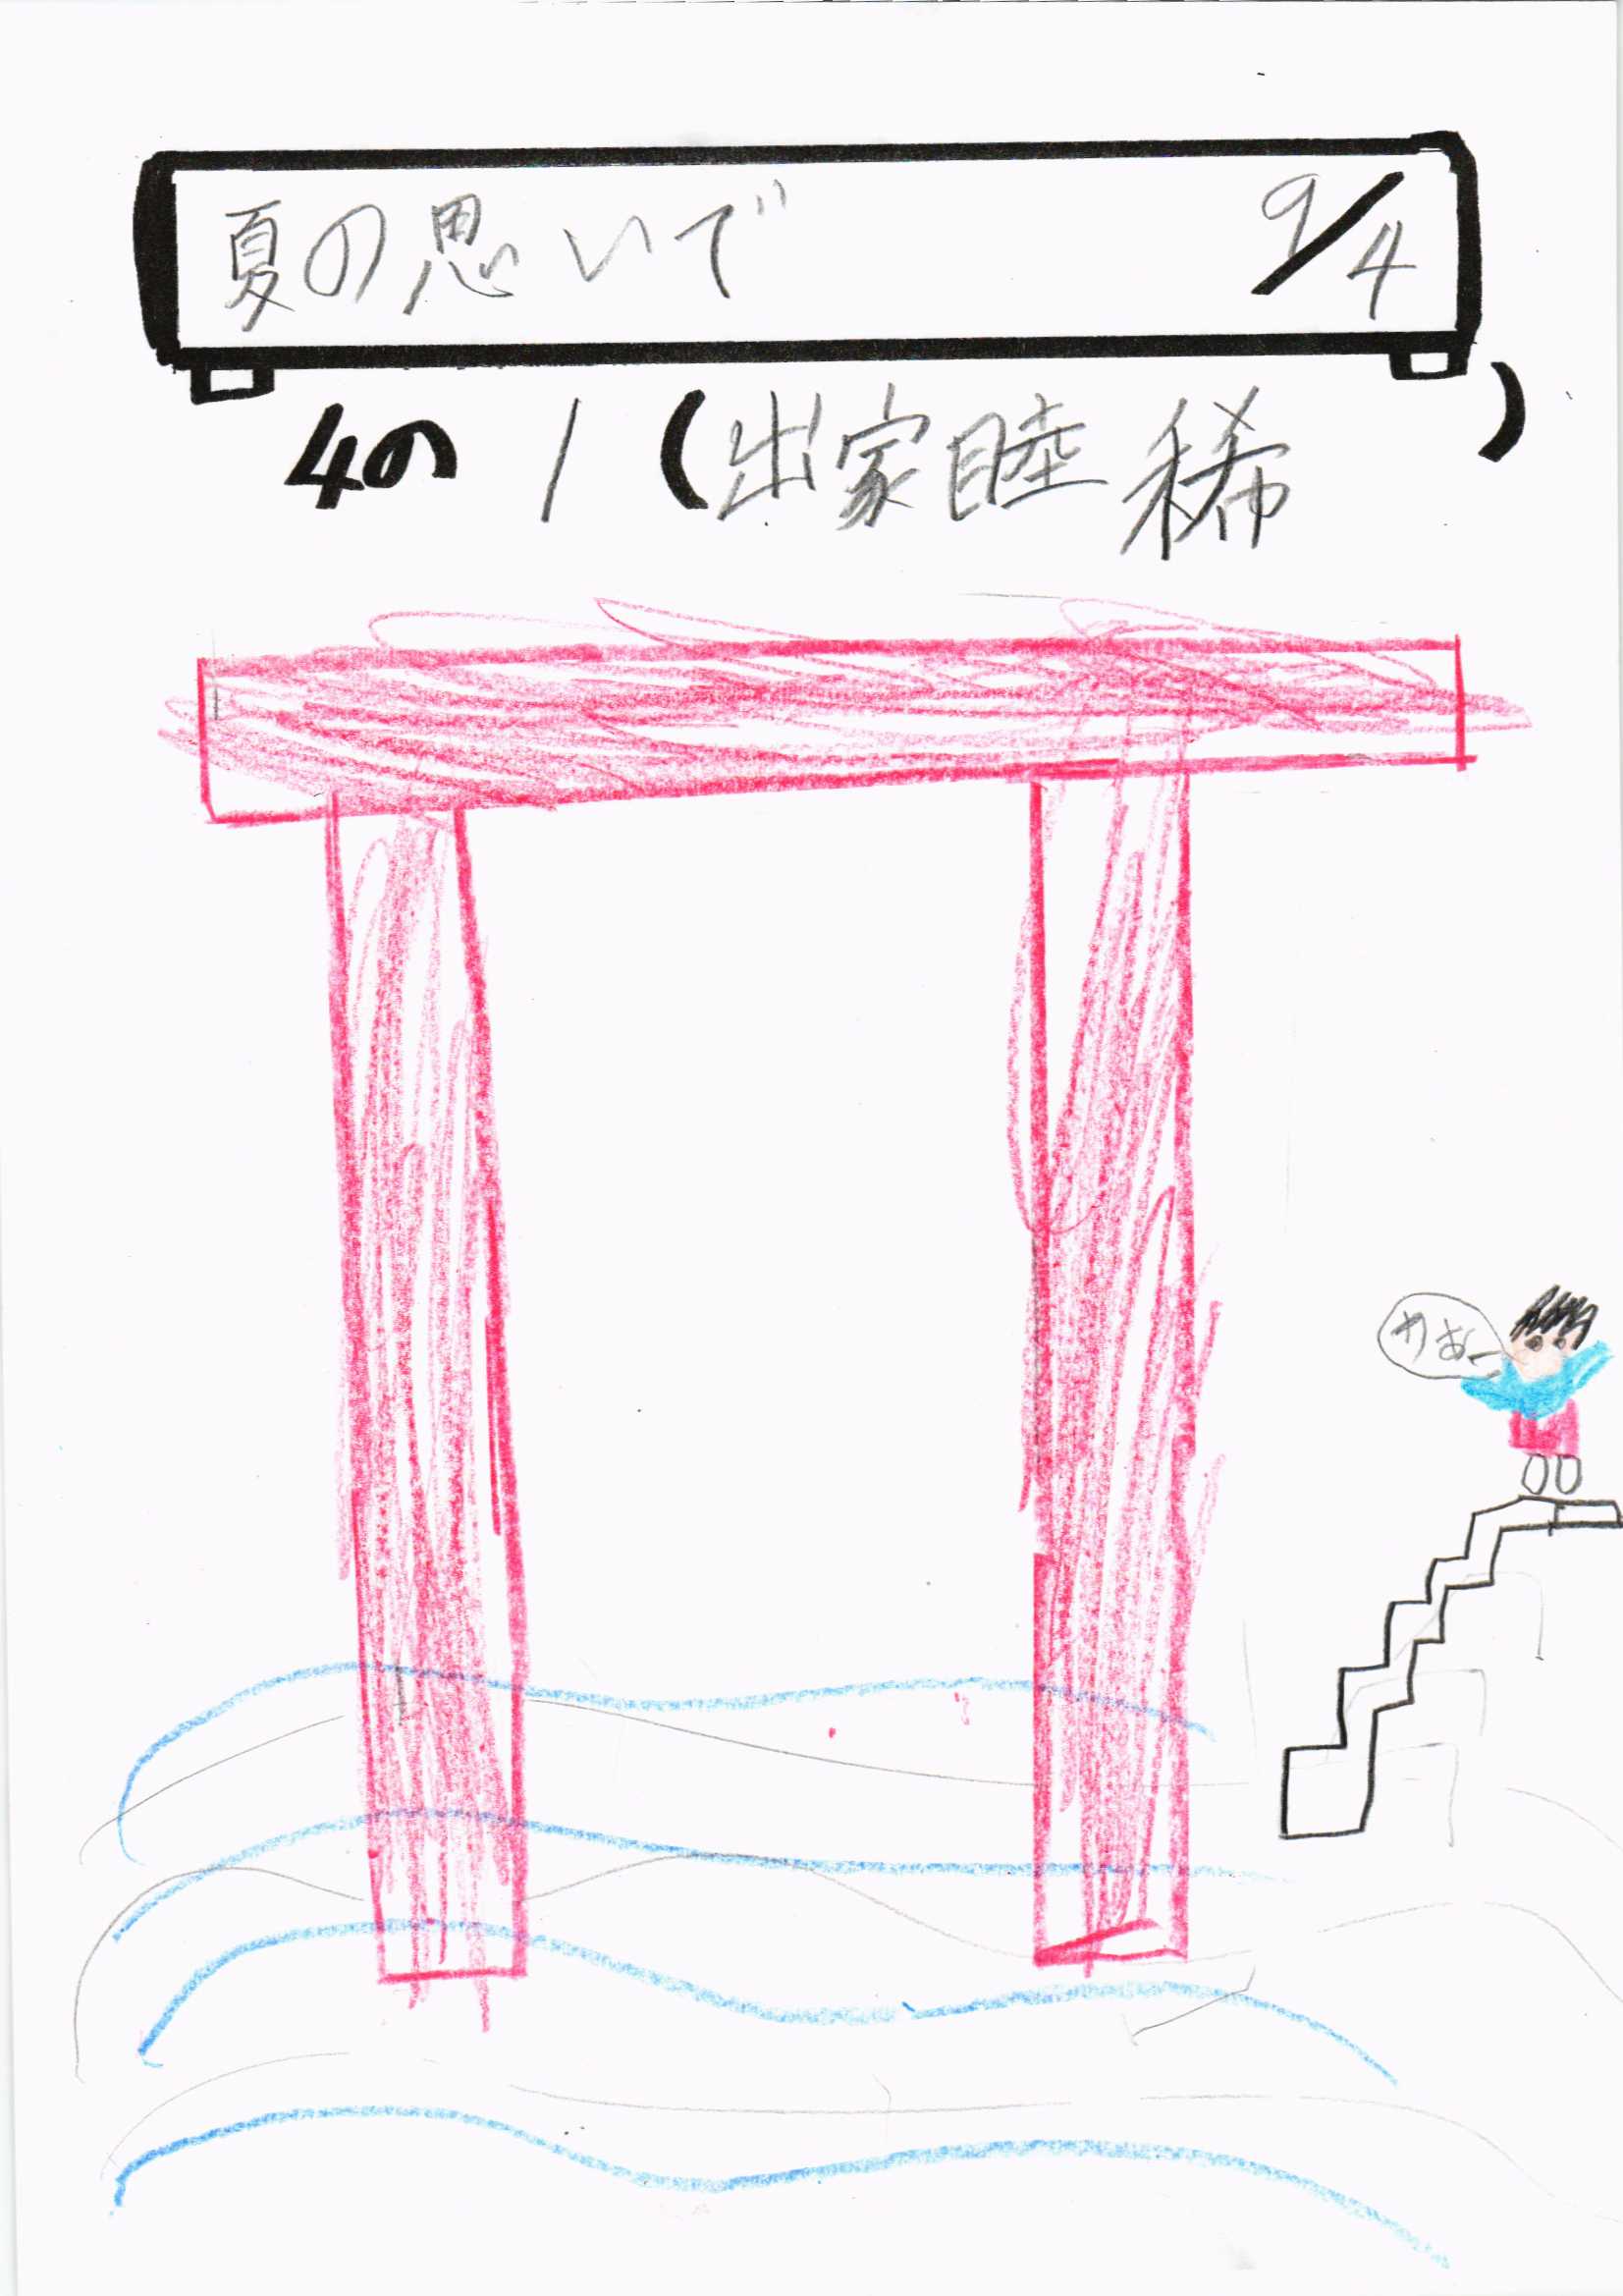 夏の思いで 9/4
4の1(出家睦稀)
わあー